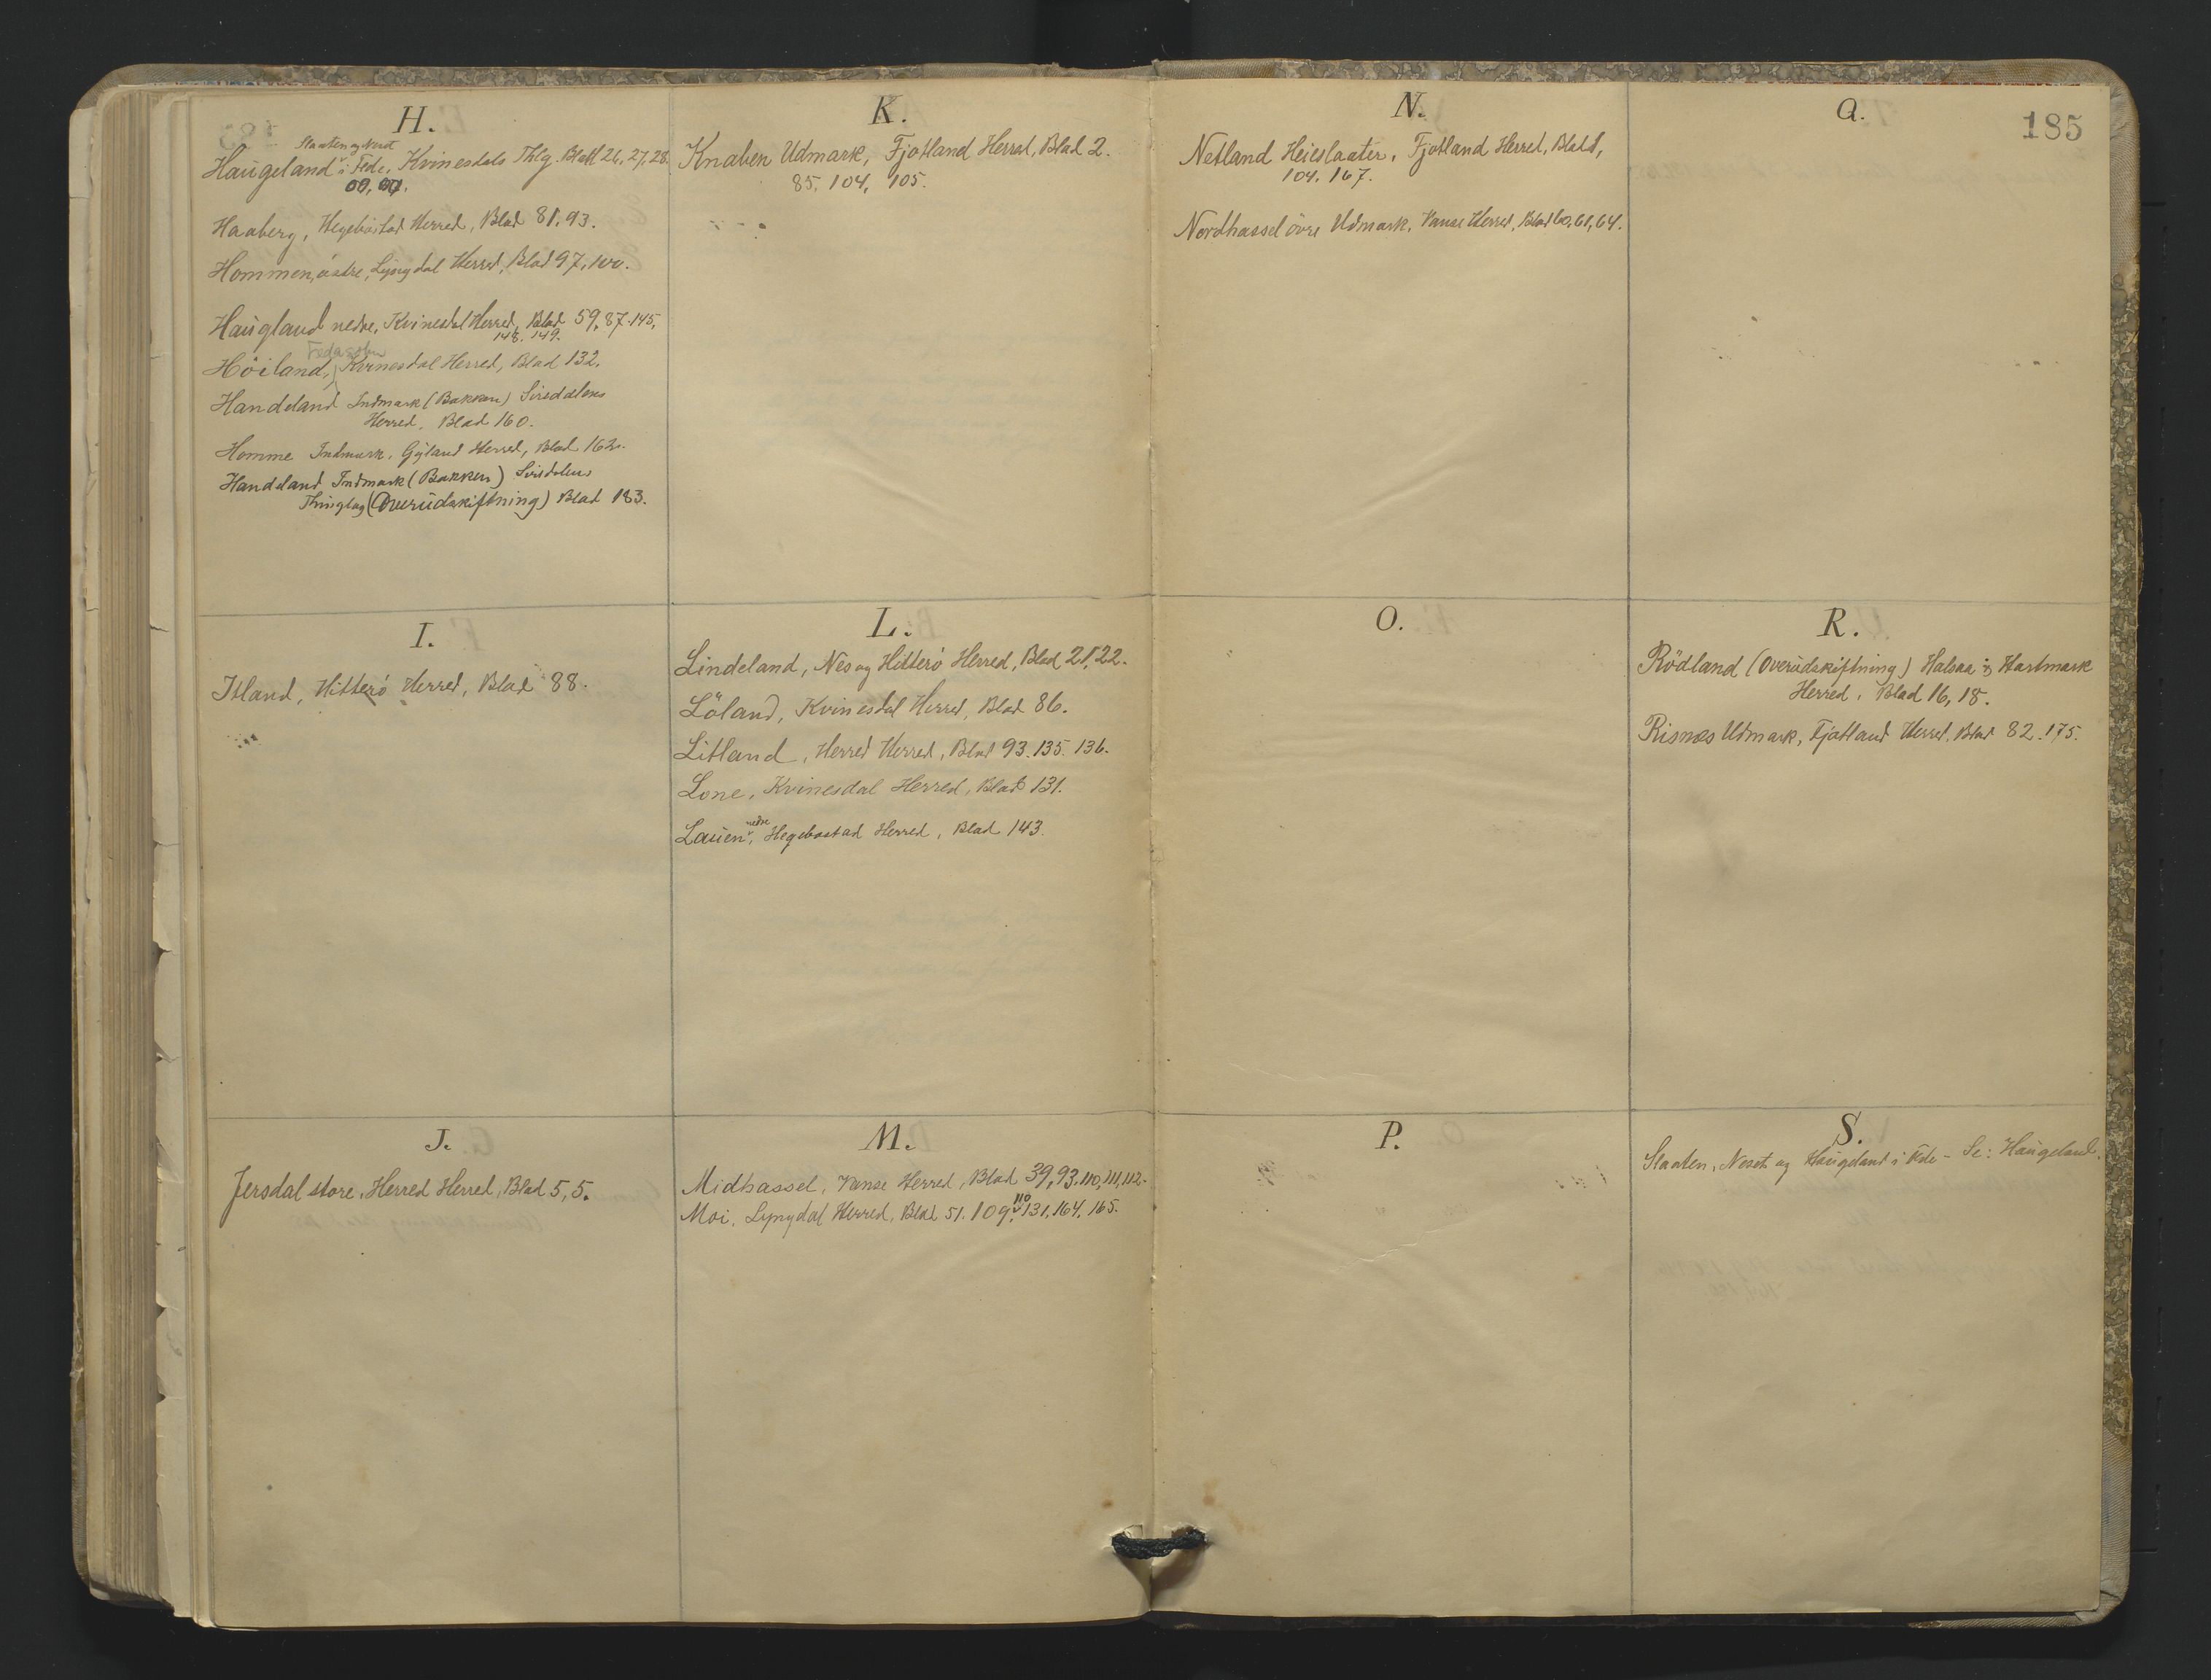 H.
Slaaten og Neset
Haugeland i Fede, Kvinesdals Thlg. Blad 26, 27, 28.
Haaberg, Hegebostad Herred, Blad 81, 93.
Hommen, östre, Lyngdal Herred, Blad 97, 100.
Haugland nedre, Kvinesdal Herred, Blad 59, 87. 145,
148. 149.
Höiland, Kvinesdal Herred, Blad 132.
Handeland Indmark (Bakken) Siredalens
Herred, Blad 160.
Homme Indmark, Gyland Herred, Blad 162.
Handeland Indmark (Bakken) Siredalens
Thinglag (Overudskiftning) Blad 183.
I.
Itland, Hitterö Herred, Blad 88.
J.
Jersdal store, Herred Herred, Blad 5, 5.
K.
Knaben Udmark, Fjotland Herred, Blad 2.
85, 104, 105.
L.
Lindeland, Nes og Hitterö Herred, Blad 21, 22.
Löland, Kvinesdal Herred, Blad 86.
Litland, Herred Herred, Blad 93. 135. 136.
Lone, Kvinesdal Herred, Blad 131.
nedre
Lauen, Hegebostad Herred, Blad 143.
M.
Midhassel, Vanse Herred, Blad 39, 93, 110, 111, 112.
110
Moi, Lyngdal Herred, Blad 51. 109, 131, 164, 165.
N.
Netland Heieslaater, Fjotland Herred, Blad
104. 167.
Nordhassel övre Udmark, Vanse Herred, Blad 60, 61, 64.
O.
P.
Q.
185
R.
Rödland (Overudskiftning) Halsaa & Hartmark
Herred, Blad 16, 18.
Risnes Udmark, Fjotland Herred, Blad 82. 175.
S.
Slaaten, Neset og Haugeland i Fede - Se: Haugeland.